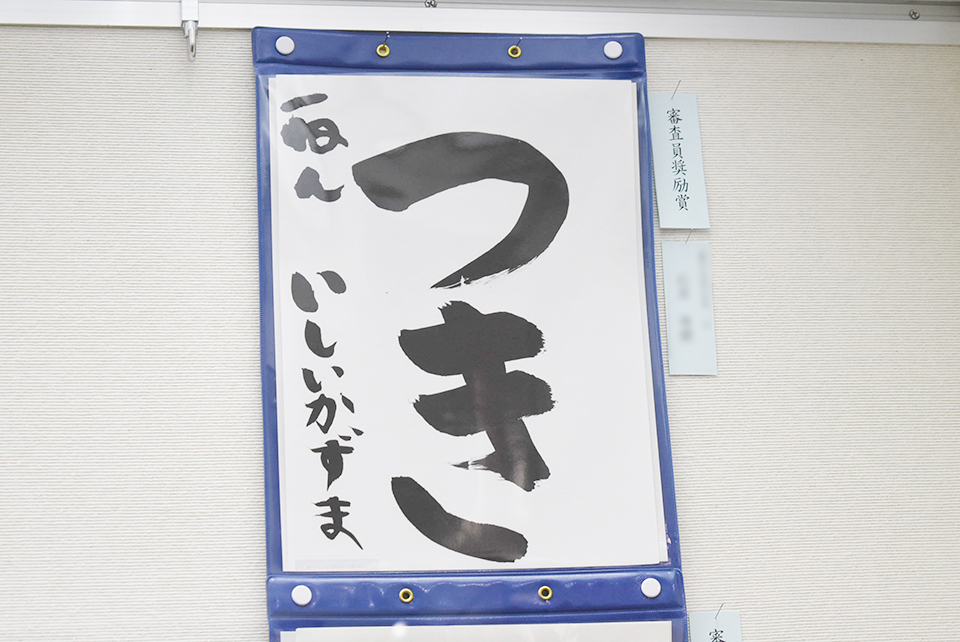 つき
一ねん いしいかずま
審査員奨励賞
審